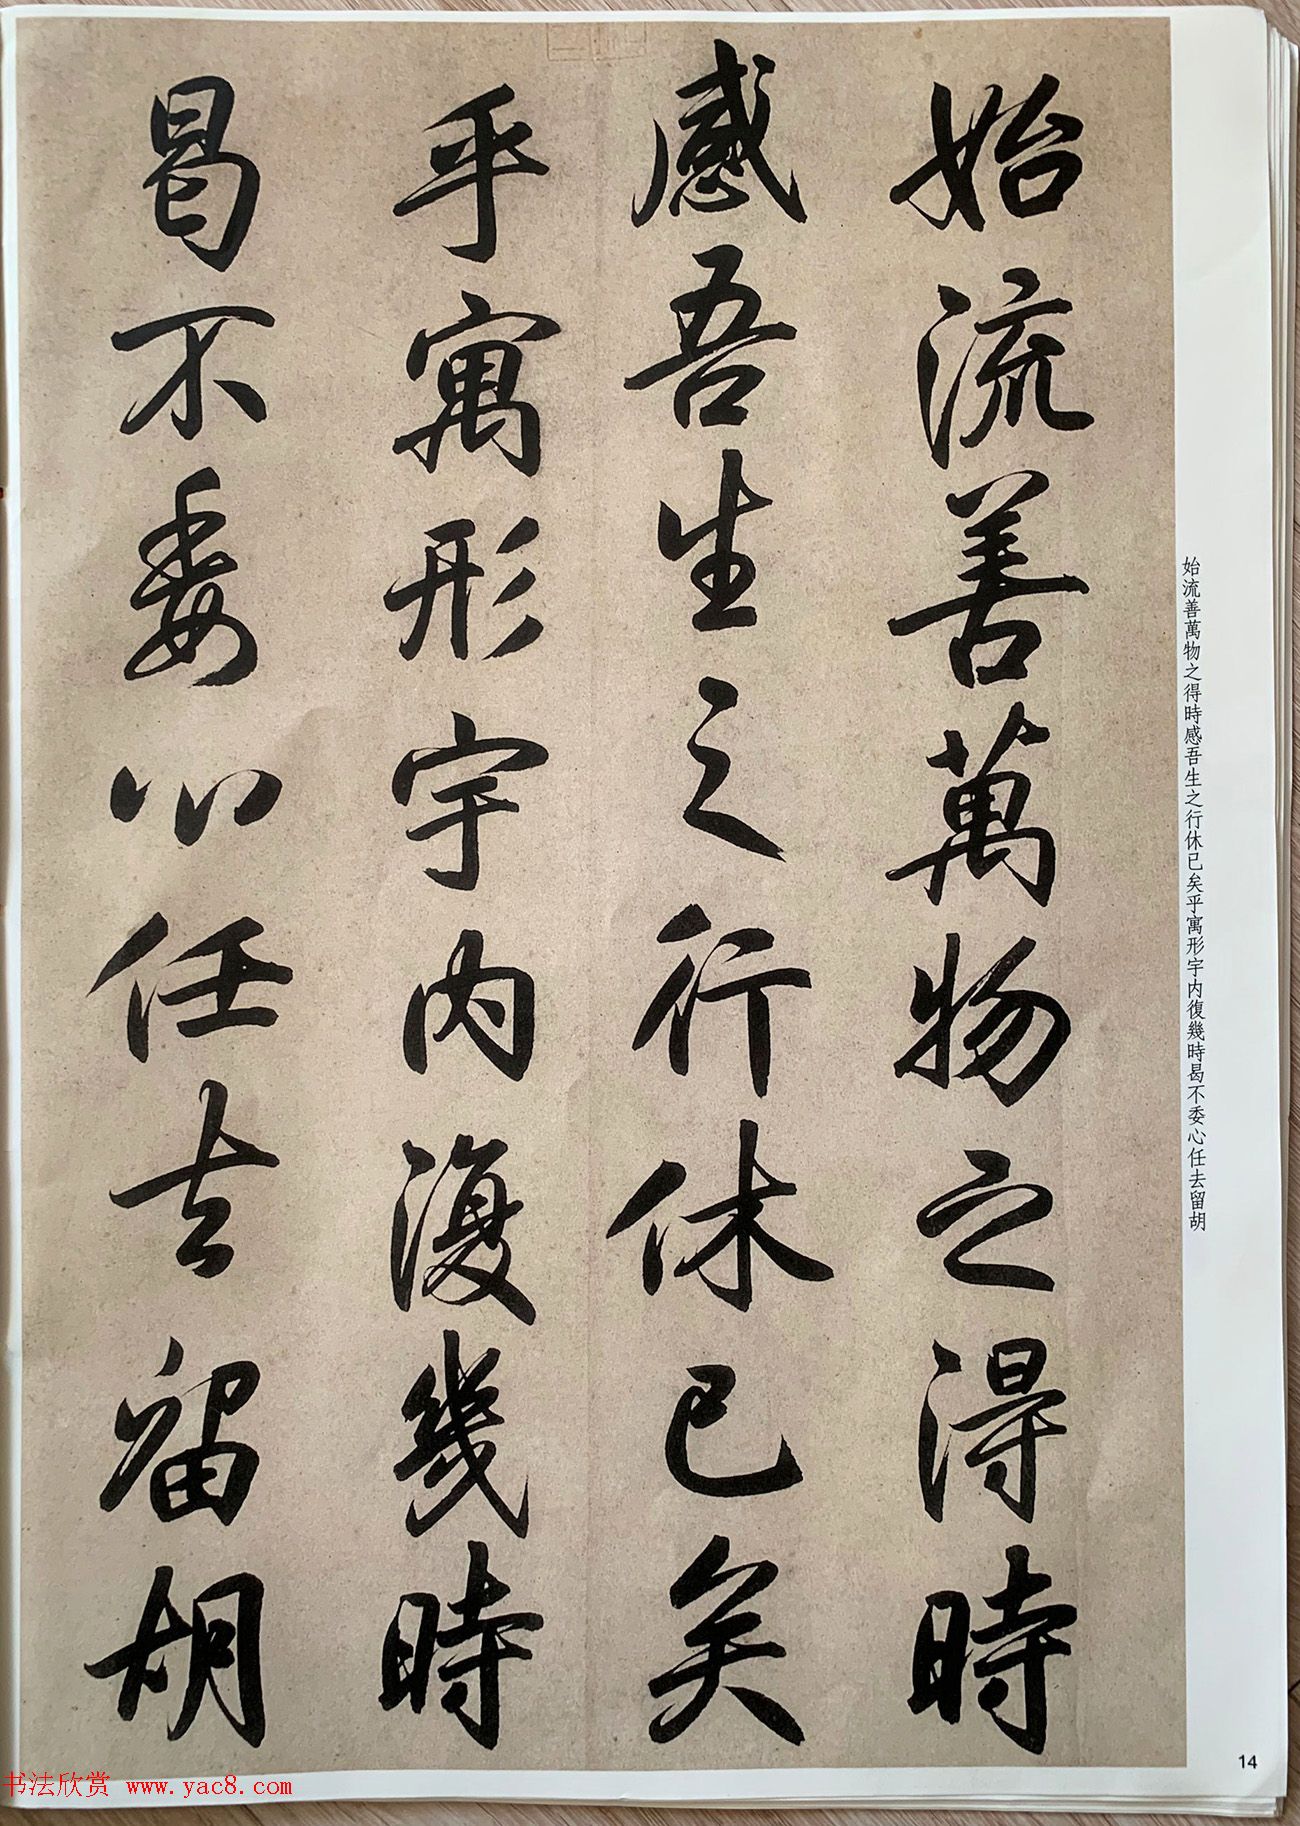 始流善萬物之得時
感吾生之行休已矣
乎寓形宇内復幾時
曷不委心任去留胡
始流善萬物之得時感吾生之行休已矣乎寓形宇内復幾時曷不委心任去留胡
14
书法欣赏 www.yac8.com